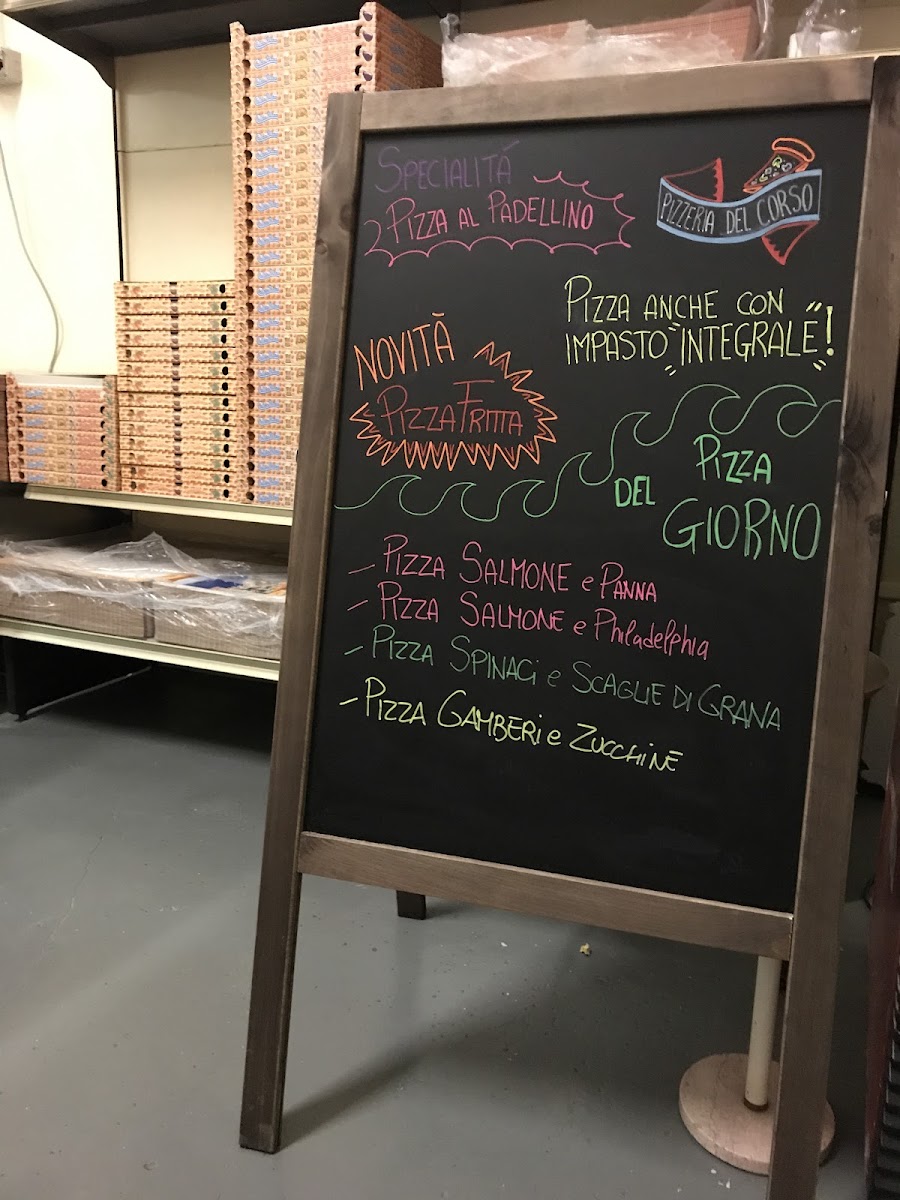 SPECIALITÁ
PIZZA AL PADELLINO
PIZZERIA DEL CORSO
PIZZA ANCHE CON
IMPASTO "INTEGRALE"!
NOVITÀ
PIZZA FRITTA
PIZZA
DEL GIORNO
- PIZZA SALMONE e PANNA
- PIZZA SALMONE e Philadelphia
- PIZZA SPINACi e SCAGLIE DI GRANA
- PIZZA GAMBERi e ZUCCHINE